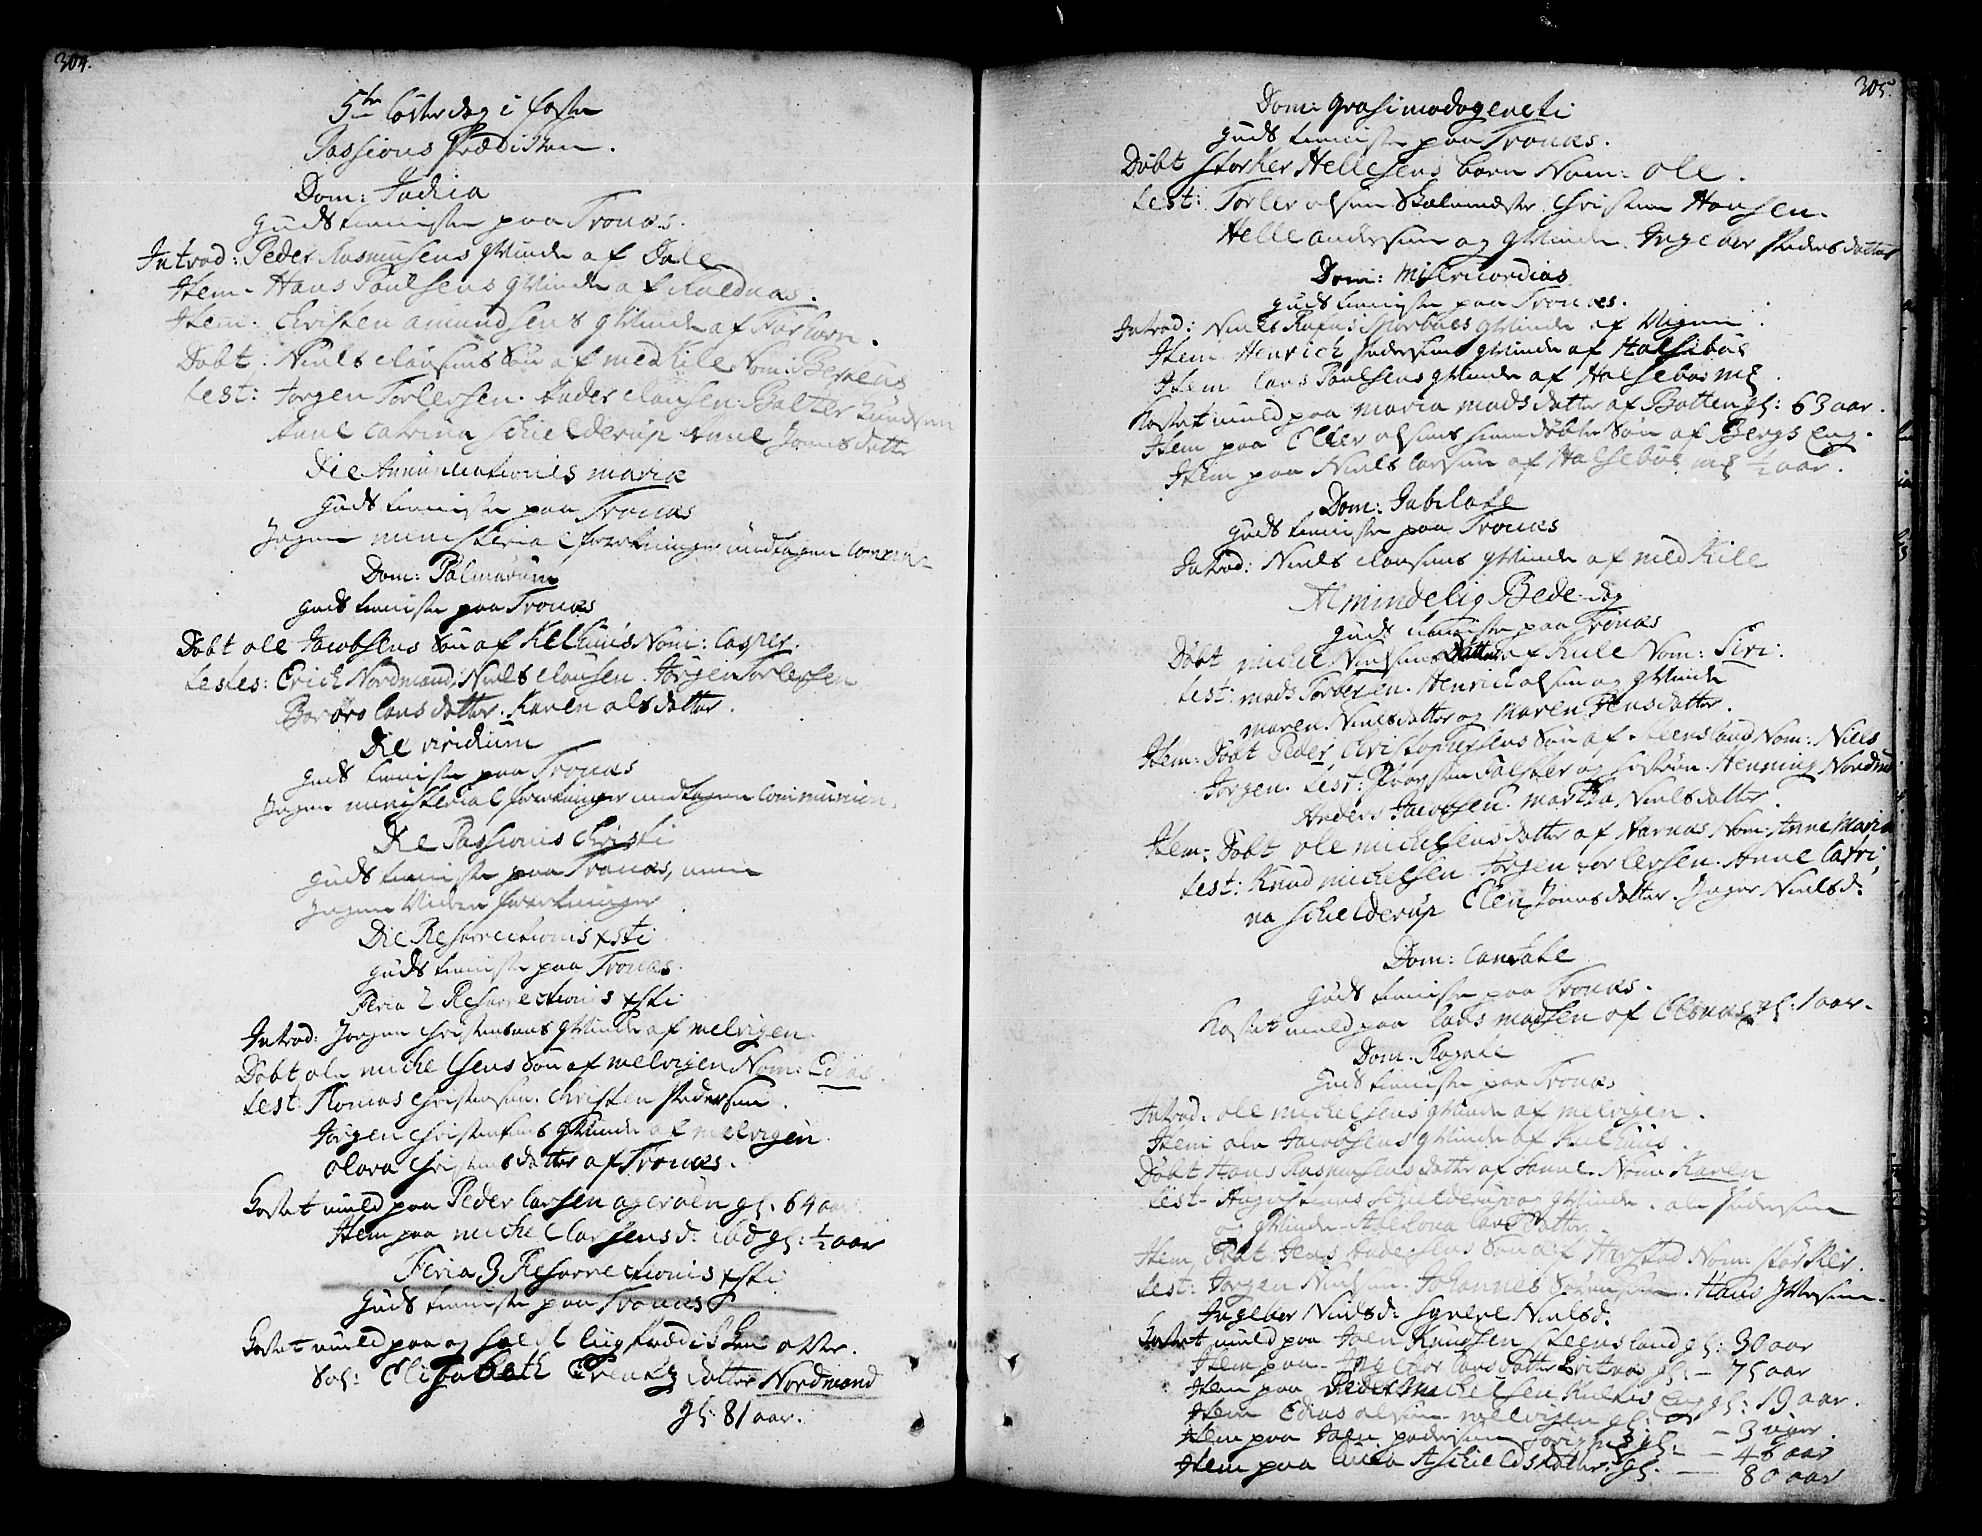 304.
5te Løsterdag i faste
Passions Prædiken.
Dom: Judica
Guds tienniste paa Tronæs.
Introd: Peder Rasmusens qvinde af Dale
Item - Hans Poulsens qvinde af
Item: Christen Amundsens qvinde af
Døbt. Niels Clausens Søn af med Kile Nom: Berens
test: Jørgen Torlersen. Ander Clausen. Balter Knudsen
Anne Catrina Schielderup. Anne Jonnsdatter
Die Annunciationis mariæ
Guds tienniste paa Tronæs
Ingen ministerial forretninger undtagen Commun-
Dom: Palmarum
Guds tienniste paa Tronæs
Døbt ole Jacobsens Søn af Kelhuus Nom: Casper.
testes: Erich Nordmand, Niels Clausen. Jørgen Torlersen
Barbro Larsdatter. Karen olsdatter.
Die viridium
Guds tienniste paa Tronæs
Ingen ministerial forretninger undtagen Communion.
Die Passionis Christi
Guds tienniste paa Tronæs, men
Ingen Viidere forretninger
Die Resurrectionis xsti
Guds tienniste paa Tronæs.
Feria 2 Resurrectionis xsti
Introd: Jørgen Christensens qvinde af melvigen.
Døbt ole michelsens Søn af melvigen Nom: Edias
test: Thomas Christensen. Christen Pedersen.
Jørgen Christensens qvinde af melvigen.
olava Christensdatter af Tronæs.
Kastet muld paa Peder Larsen agerøen gl: 64 aar
Item paa michel Larsens d. gl: ½ aar
Feria 3 Resurrectionis xsti
Guds tienniste paa Tronæs
Kastet muld paa og holdt liigprædichen over.
Sal: Elisabeth datter Nordmand
gl: 81 aar.
305.
Dom: Qvasimodogeneti
Guds tienniste paa Tronæs.
Døbt Storker Hellesens barn Nom: ole.
test: Torler olsen Skolemester. Christen Hansen.
Helle andersen og qvinde. Ingebor Pedersdatter
Dom: misericordias
Guds tienniste paa Tronæs.
Introd: Niels qvinde af Vigen.
Item Henrich Pedersens qvinde af Halsebøe
Item Lars Poulsens qvinde af Halsebøe
Kastet muld paa maria madsdatter af Botten gl: 63 aar.
Item paa Eller olsens hiemdøbte Søn af Bergs Eng.
Item paa Niels Larsen af Halsebøe ½ aar.
Dom: Jubilate
Guds tienniste paa Tronæs
Introd: Niels Clausens qvinde af med Kile
Almindelig Bede-dag
Guds tienniste paa Tronæs
Døbt michel Nielsens datter af Kile Nom: Siri.
test: mads Torbersen. Henrich olsen og qvinde
maren Nielsdatter og maren Jensdatter.
Item: Døbt Peder Christophersens Søn af Steensland Nom: Niels
Jørgen. test: Falster og Henning Nordmd
Anders Jacobsen. martha Nielsdatter.
Item: Døbt ole michelsens datter af Narnæs Nom: Anne Maria
test: Knud michelsen. Jørgen Torlersen. Anne Catri,
na Schielderup Elen Jonnsdatter. Inger Nielsd:
Dom: Cantate
Guds tienniste paa Tronæs.
Kastet muld paa Lars madsen af gl: 1 aar.
Dom: Rogate
Guds tienniste paa Tronæs
Introd: ole michelsens qvinde af melvigen.
Item ole Jacobsens qvinde af Kelhuus.
Døbt Hans Rasmusens datter af Sanne. Nom: Karen
test: Augustinus Schielderup og qvinde. ole Pedersen
og qvinde. Larsdatter.
Item Døbt Jens Andersens Søn af Nom: Storker.
test: Jørgen Nielsen. Johannes Sørensen. Hans
Ingebor Nielsd: Nielsd:
Kastet muld paa Joen Knudsen Steensland gl: 30 aar
Item paa Ingebor Larsdatter gl: - 75 aar
Item paa Peder michelsen gl: 19 aar.
Item Edias olsen melvigen gl: - 3 uger.
Item paa Joen Pedersen gl: - 46 aar
Item paa datter. gl. - 80 aar